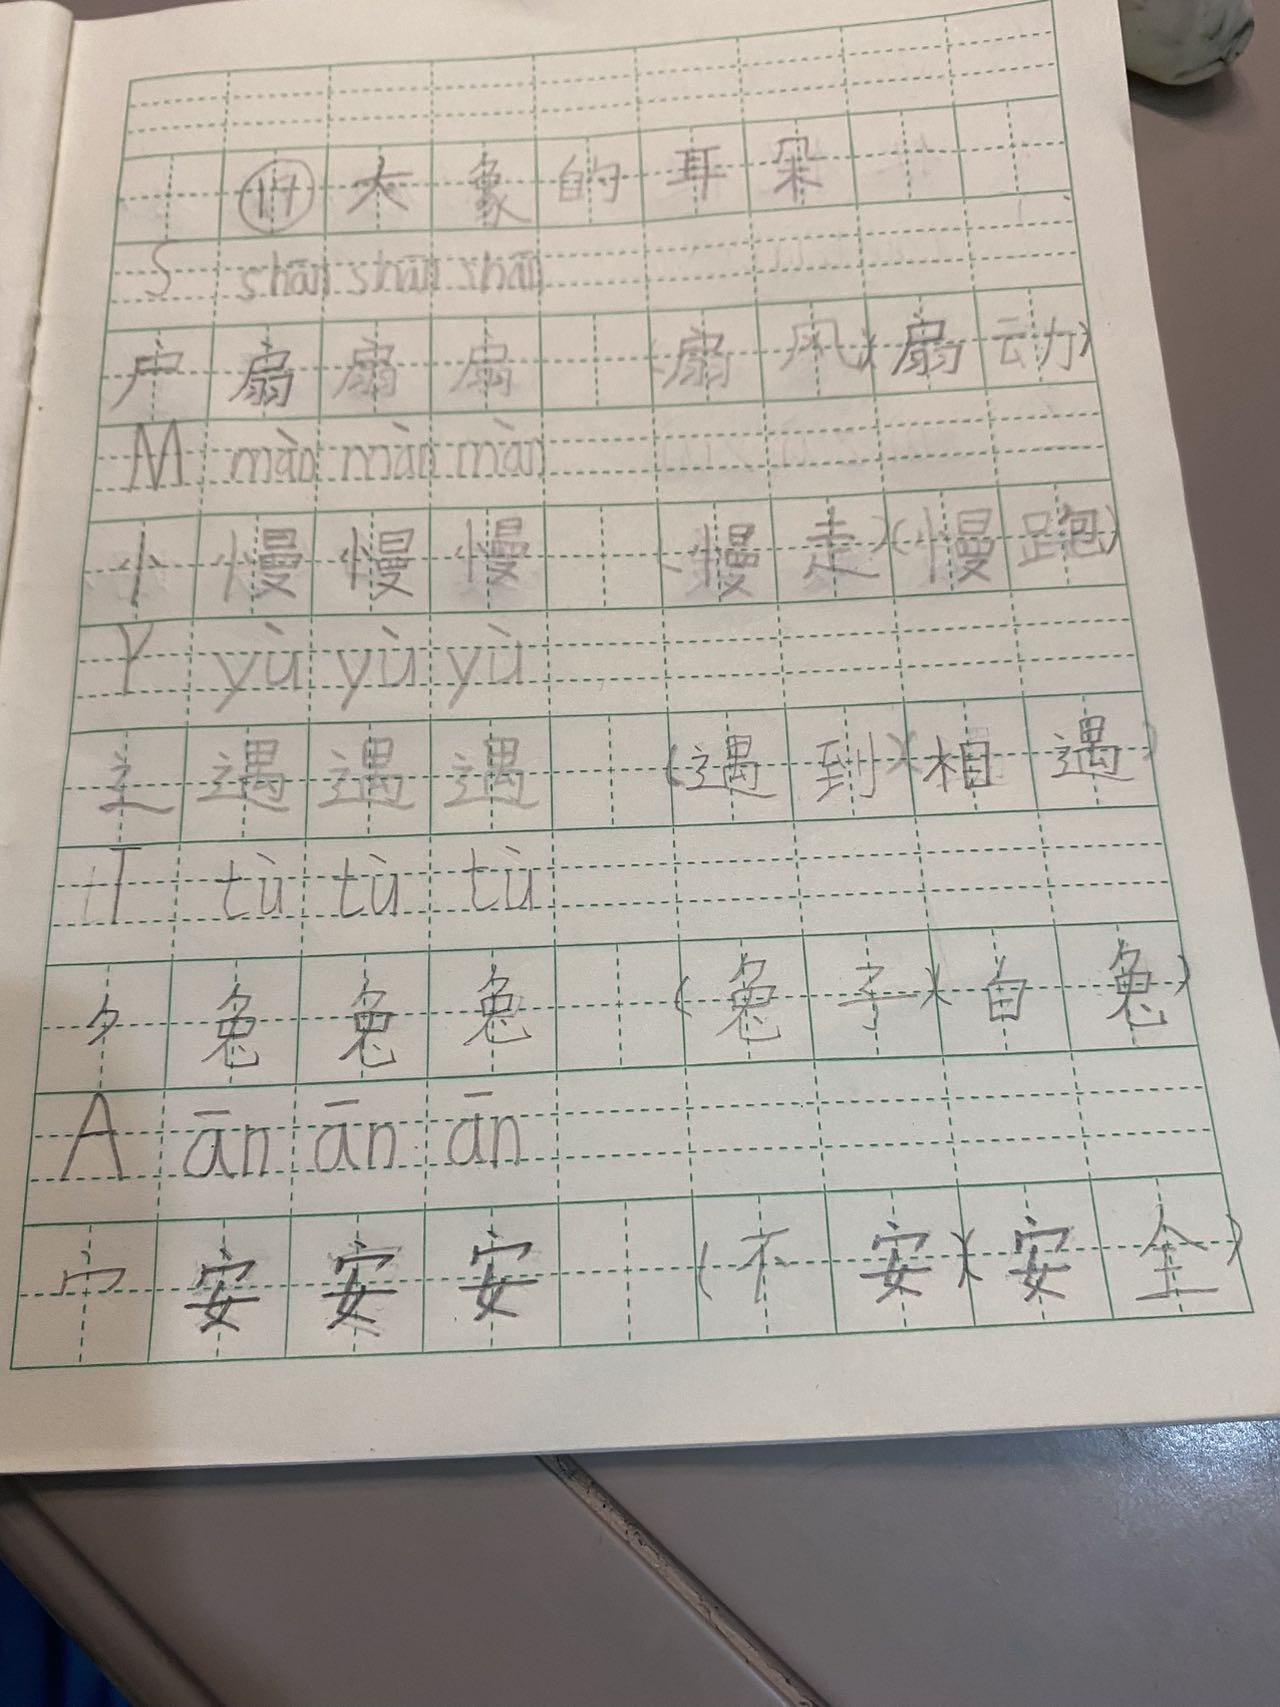 ⑰大象的耳朵
S shān shān shān
户 扇 扇 扇 (扇风)(扇动)
M màn màn màn
忄 慢 慢 慢 (慢走)(慢跑)
Y yù yù yù
辶 遇 遇 遇 (遇到)(相遇)
T tù tù tù
⺈ 兔 兔 兔 (兔子)(白兔)
A ān ān ān
宀 安 安 安 (不安)(安全)